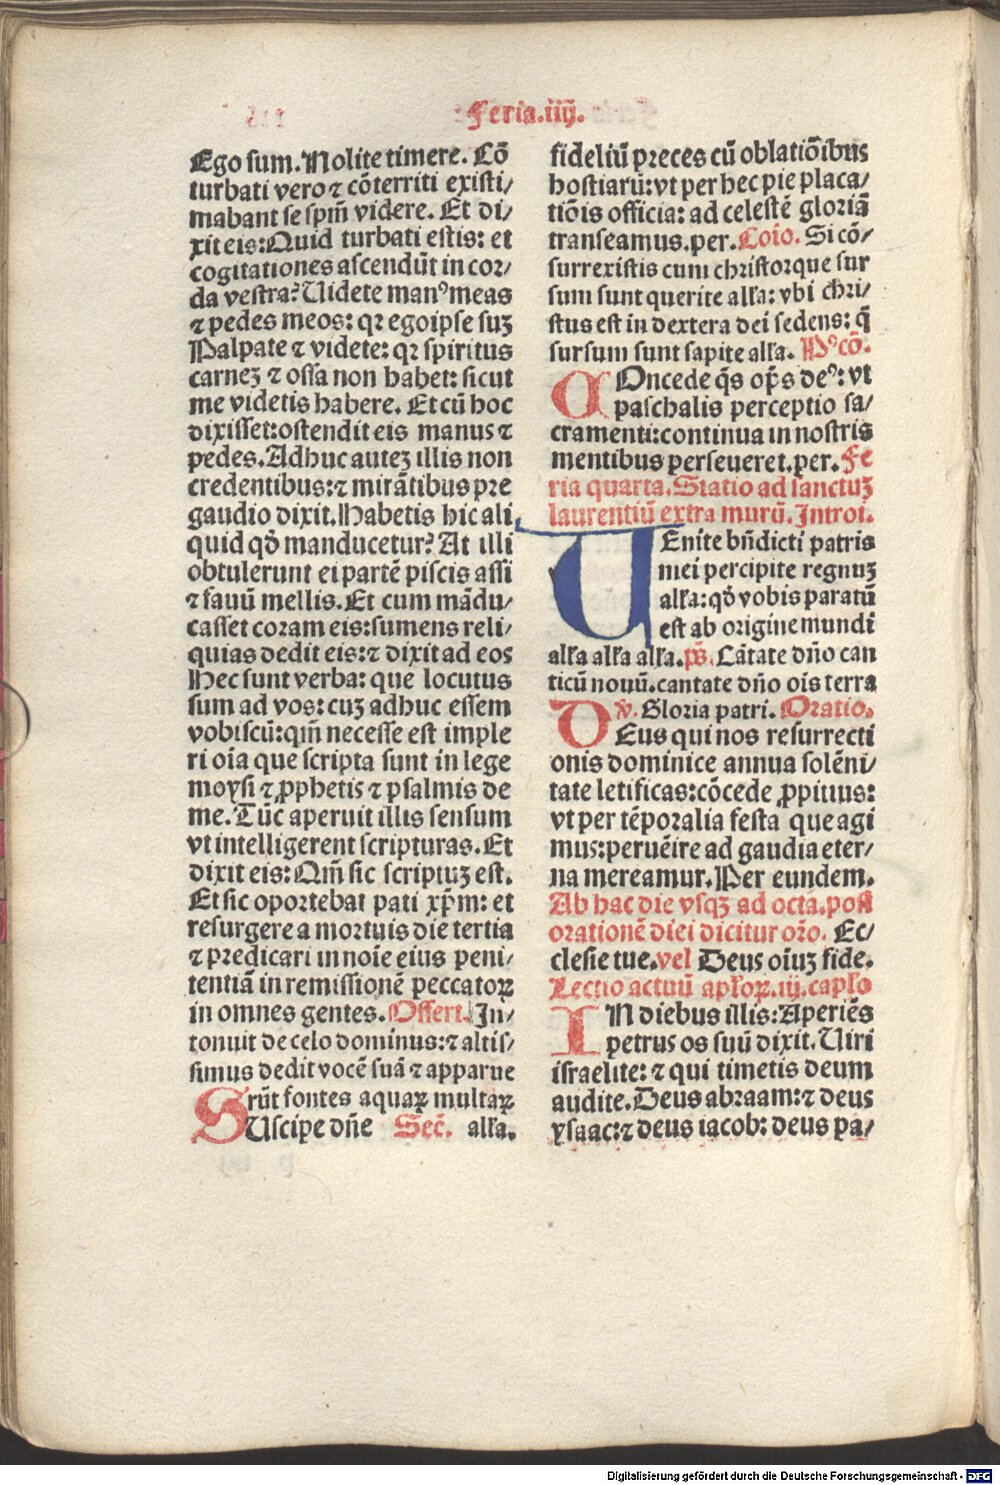 Feria.iiij.
Ego sum. Nolite timere. Cō
turbati vero ⁊ cōterriti existi/
mabant se spm̄ videre. Et di/
xit eis: Quid turbati estis: et
cogitationes ascendūt in cor/
da vestra? Uidete manꝰ meas
⁊ pedes meos: qꝛ ego ipse suꝫ
Palpate ⁊ videte: qꝛ spiritus
carneꝫ ⁊ ossa non habet: sicut
me videtis habere. Et cū hoc
dixisset: ostendit eis manus ⁊
pedes. Adhuc auteꝫ illis non
credentibus: ⁊ mirātibus pre
gaudio dixit. Habetis hic ali
quid qd̄ manducetur? At illi
obtulerunt ei partē piscis assi
⁊ fauū mellis. Et cum mādu/
casset coram eis: sumens reli/
quias dedit eis: ⁊ dixit ad eos
Hec sunt verba: que locutus
sum ad vos: cuꝫ adhuc essem
vobiscū: qm̄ necesse est imple
ri oīa que scripta sunt in lege
moysi ⁊ ꝓphetis ⁊ psalmis de
me. Tūc aperuit illis sensum
vt intelligerent scripturas. Et
dixit eis: Qm̄ sic scriptuꝫ est.
Et sic oportebat pati xp̄m: et
resurgere a mortuis die tertia
⁊ predicari in noīe eius peni/
tentiā in remissionē peccatoꝝ
in omnes gentes. Offert. In/
tonuit de celo dominus: ⁊ altis/
simus dedit vocē suā ⁊ apparue
rūt fontes aquaꝝ multaꝝ
SUscipe dn̄e Sec̄. alľa.
fideliū preces cū oblatiōibus
hostiarū: vt per hec pie placa/
tiōis officia: ad celestē gloriā
transeamus. per. Coīo. Si cō/
surrexistis cum christo: que sur
sum sunt querite alľa: vbi chri/
stus est in dextera dei sedens: q̄
sursum sunt sapite alľa. Pꝰcō.
COncede q̄s op̄s deꝰ: vt
paschalis perceptio sa/
cramenti: continua in nostris
mentibus perseueret. per. Fe
ria quarta. Statio ad sanctuꝫ
laurentiū extra murū. Introi.
UEnite bn̄dicti patris
mei percipite regnuꝫ
alľa: qd̄ vobis paratū
est ab origine mundi
alľa alľa alľa. ps̄. Cātate dn̄o can
ticū nouū. cantate dn̄o oīs terra
v̄. Gloria patri. Oratio.
DEus qui nos resurrecti
onis dominice annua solēni/
tate letificas: cōcede ꝓpitius:
vt per tēporalia festa que agi
mus: peruēire ad gaudia eter/
na mereamur. Per eundem.
Ab hac die vsqꝫ ad octa. post
orationē diei dicitur or̄o. Ec/
clesie tue. vel Deus oīuꝫ fide.
Lectio actuū apľoꝝ. iij. capľo
IN diebus illis: Aperiēs
petrus os suū dixit. Uiri
israelite: ⁊ qui timetis deum
audite. Deus abraam: ⁊ deus
ysaac: ⁊ deus iacob: deus pa/
Digitalisierung gefördert durch die Deutsche Forschungsgemeinschaft - DFG